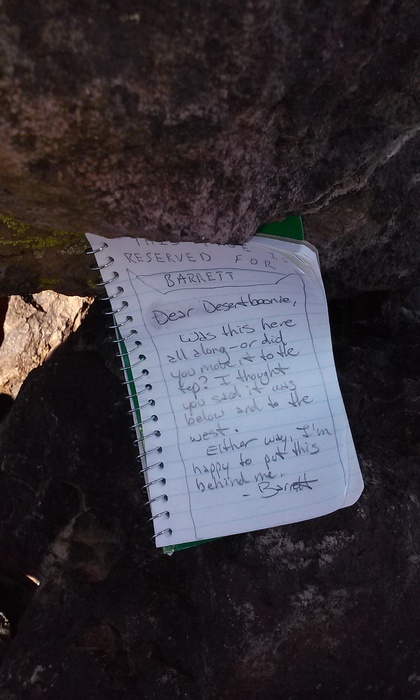 RESERVED FOR
BARRETT
Dear Desertboonie,
Was this here
all along - or did
you move it to the
top? I thought
you said it was
below and to the
west.
Either way, I'm
happy to put this
behind me.
- Barrett